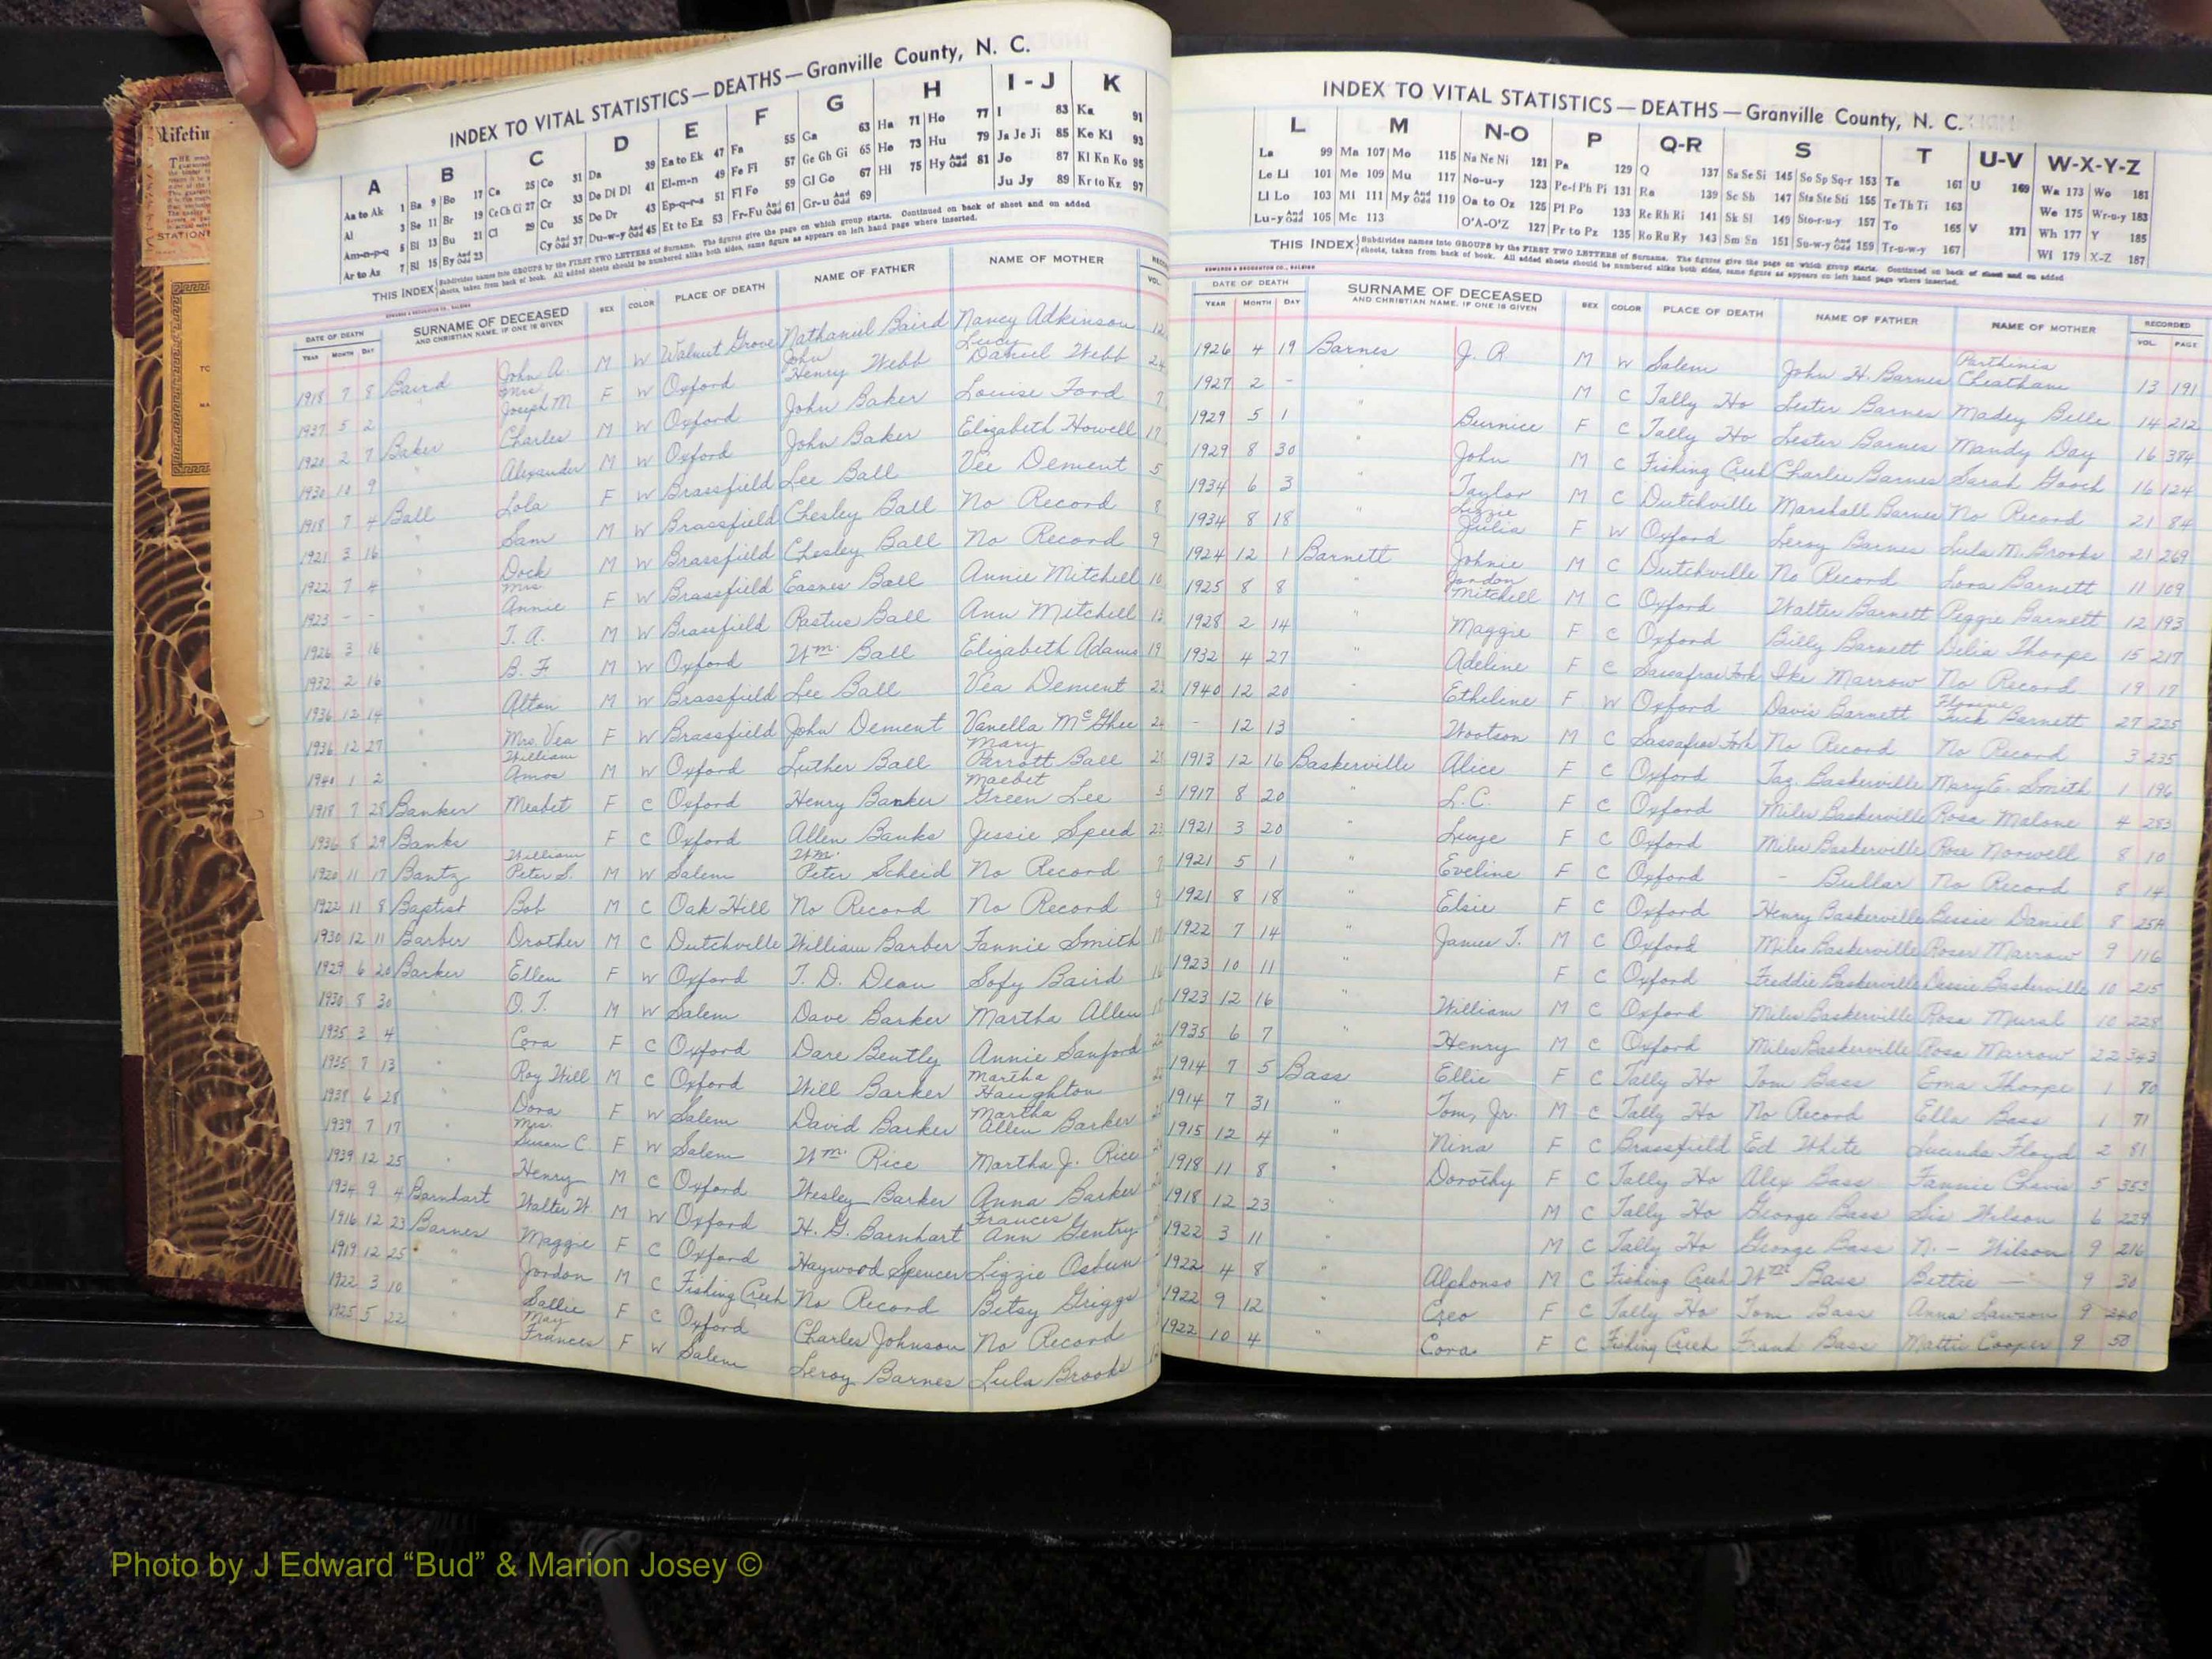 INDEX TO VITAL STATISTICS—DEATHS—Granville County, N. C.
A B C D E F G H I-J K
Aa to Ak 1 Ba 9 Bo 17 Ca 25 Co 31 Da 39 Ea to Ek 47 Fa 55 Ga 63 Ha 71 Ho 77 I 83 Ka 91
Al 3 Be 11 Br 19 Ce Ch Ci 27 Cr 33 De Di Dl 41 El-m-n 49 Fe Fi 57 Ge Gh Gi 65 He 73 Hu 79 Ja Je Ji 85 Ke Ki 93
Am-n-p-q 5 Bi 13 Bu 21 Cl 29 Cu 35 Do Dr 43 Ep-q-r-s 51 Fl Fo 59 Gl Go 67 Hi 75 Hy And Odd 81 Jo 87 Kl Kn Ko 95
Ar to Az 7 Bl 15 By And Odd 23 Cy And Odd 37 Du-w-y And Odd 45 Et to Ez 53 Fr-Fu And Odd 61 Gr-u And Odd 69 Ju Jy 89 Kr to Kz 97
THIS INDEX Subdivides names into GROUPS by the FIRST TWO LETTERS of Surname. The figures give the page on which group starts. Continued on back of sheet and on added
sheets, taken from back of book. All added sheets should be numbered alike both sides, same figure as appears on left hand page where inserted.
DATE OF DEATH SURNAME OF DECEASED SEX COLOR PLACE OF DEATH NAME OF FATHER NAME OF MOTHER
YEAR MONTH DAY AND CHRISTIAN NAME, IF ONE IS GIVEN VOL.
1918 7 8 Baird John A. M W Walnut Grove Nathaniel Baird Nancy Adkinson 12
1937 5 2 Mrs. Joseph M F W Oxford John Henry Webb Lucy Daniel Webb 24
1920 2 7 Baker Charles M W Oxford John Baker Louise Ford 7
1930 10 9 " Alexander M W Oxford John Baker Elizabeth Howell 17
1918 7 4 Ball Lola F W Brassfield Lee Ball Vee Dement 5
1921 3 16 " Sam M W Brassfield Chesley Ball No Record 8
1922 7 4 " Dock M W Brassfield Chesley Ball No Record 9
1923 - - " Mrs. Annie F W Brassfield Easnes Ball Annie Mitchell 10
1926 3 16 " T. A. M W Brassfield Rastus Ball Ann Mitchell 13
1932 2 16 " B. F. M W Oxford Wm. Ball Elizabeth Adams 19
1936 12 14 " Alton M W Brassfield Lee Ball Vea Dement
1936 12 27 " Mrs. Vea F W Brassfield John Dement Vanella McGhee
1940 1 2 " William Amos M W Oxford Luther Ball Mary Parrott Ball
1918 7 28 Banker Meabet F C Oxford Henry Banker Maebet Green Lee 5
1936 8 29 Banks F C Oxford Allen Banks Jessie Speed 23
1920 11 17 Bantz William Peter S. M W Salem Wm. Peter Scheid No Record 7
1922 11 8 Baptist Bob M C Oak Hill No Record No Record 9
1930 12 11 Barber Drother M C Dutchville William Barber Fannie Smith
1929 6 20 Barker Ellen F W Oxford T. D. Dean Sofy Baird 16
1930 8 30 " O. T. M W Salem Dave Barker Martha Allen
1935 3 4 " Cora F C Oxford Dare Bently Annie Sanford
1935 7 13 " Roy Will M C Oxford Will Barker Martha Haughton
1938 6 28 " Dora F W Salem David Barker Martha Allen Barker
1939 7 17 " Mrs. Susan C. F W Salem Wm. Rice Martha J. Rice
1939 12 25 " Henry M C Oxford Wesley Barker Anna Barker
1934 9 4 Barnhart Walter W. M W Oxford H. G. Barnhart Frances Ann Gentry
1916 12 23 Barnes Maggie F C Oxford Haywood Spencer Lizzie Osburn
1919 12 25 " Jordon M C Fishing Creek No Record Betsy Griggs
1922 3 10 " Sallie F C Oxford Charles Johnson No Record
1925 5 22 May Frances F W Salem Leroy Barnes Lula Brooks
INDEX TO VITAL STATISTICS—DEATHS—Granville County, N. C.
L M N-O P Q-R S T U-V W-X-Y-Z
La 99 Ma 107 Mo 115 Na Ne Ni 121 Pa 129 Q 137 Sa Se Si 145 So Sp Sq-r 153 Ta 161 U 169 Wa 173 Wo 181
Le Li 101 Me 109 Mu 117 No-u-y 123 Pe-f Ph Pi 131 Ra 139 Sc Sh 147 Sta Ste Sti 155 Te Th Ti 163 We 175 Wr-u-y 183
Ll Lo 103 Mi 111 My And Odd 119 Oa to Oz 125 Pl Po 133 Re Rh Ri 141 Sk Sl 149 Sto-r-u-y 157 To 165 V 171 Wh 177 Y 185
Lu-y And Odd 105 Mc 113 O'A-O'Z 127 Pr to Pz 135 Ro Ru Ry 143 Sm Sn 151 Su-w-y And Odd 159 Tr-u-w-y 167 Wi 179 X-Z 187
THIS INDEX Subdivides names into GROUPS by the FIRST TWO LETTERS of Surname. The figures give the page on which group starts. Continued on back of sheet and on added
sheets, taken from back of book. All added sheets should be numbered alike both sides, same figure as appears on left hand page where inserted.
DATE OF DEATH SURNAME OF DECEASED SEX COLOR PLACE OF DEATH NAME OF FATHER NAME OF MOTHER RECORDED
YEAR MONTH DAY AND CHRISTIAN NAME, IF ONE IS GIVEN VOL. PAGE
1926 4 19 Barnes J. R. M W Salem John H. Barnes Parthinia Cheatham 13 191
1927 2 - " M C Tally Ho Lester Barnes Madey Belle 14 212
1929 5 1 " Burnice F C Tally Ho Lester Barnes Mandy Day 16 374
1929 8 30 " John M C Fishing Creek Charlie Barnes Sarah Gooch 16 124
1934 6 3 " Taylor M C Dutchville Marshall Barnes No Record 21 84
1934 8 18 " Lizzie Julia F W Oxford Leroy Barnes Lula M. Brooks 21 269
1924 12 1 Barnett Johnie M C Dutchville No Record Lora Barnett 11 109
1925 8 8 " Jordon Mitchell M C Oxford Walter Barnett Peggie Barnett 12 193
1928 2 14 " Maggie F C Oxford Billy Barnett Delia Thorpe 15 217
1932 4 27 " Adeline F C Sassafras Fork Ike Marrow No Record 19 17
1940 12 20 " Etheline F W Oxford Davis Barnett Florine Tuck Barnett 27 225
- 12 13 " Wootson M C Sassafras Fork No Record No Record 3 235
1913 12 16 Baskerville Alice F C Oxford Taz. Baskerville Mary E. Smith 1 196
1917 8 20 " L. C. F C Oxford Miles Baskerville Rosa Malone 4 283
1921 3 20 " F C Oxford Miles Baskerville Rosa Norwell 8 10
1921 5 1 " Eveline F C Oxford - Bullar No Record 8 14
1921 8 18 " Elsie F C Oxford Henry Baskerville Bessie Daniel 8 25A
1922 7 14 " James T. M C Oxford Miles Baskerville Rosa Marrow 9 116
1923 10 11 " F C Oxford Freddie Baskerville Dessie Baskerville 10 215
1923 12 16 " William M C Oxford Miles Baskerville Rosa Mural 10 228
1935 6 7 " Henry M C Oxford Miles Baskerville Rosa Marrow 22 343
1914 7 5 Bass Ellie F C Tally Ho Tom Bass Ema Thorpe 1 80
1914 7 31 " Tom, Jr. M C Tally Ho No Record Ella Bass 1 71
1915 12 4 " Nina F C Brassfield Ed White Lucinda Floyd 2 81
1918 11 8 " Dorothy F C Tally Ho Alex Bass Fannie Chavis 5 353
1918 12 23 " M C Tally Ho George Bass Sis Wilson 6 229
1922 3 11 " M C Tally Ho George Bass N. - Wilson 9 216
1922 4 8 " Alphonso M C Fishing Creek Wm. Bass Bettie — 9 30
1922 9 12 " Creo F C Tally Ho Tom Bass Anna Lawson 9
1922 10 4 " Cora F C Fishing Creek Frank Bass Mattie Cooper 9 50
Photo by J Edward “Bud” & Marion Josey ©